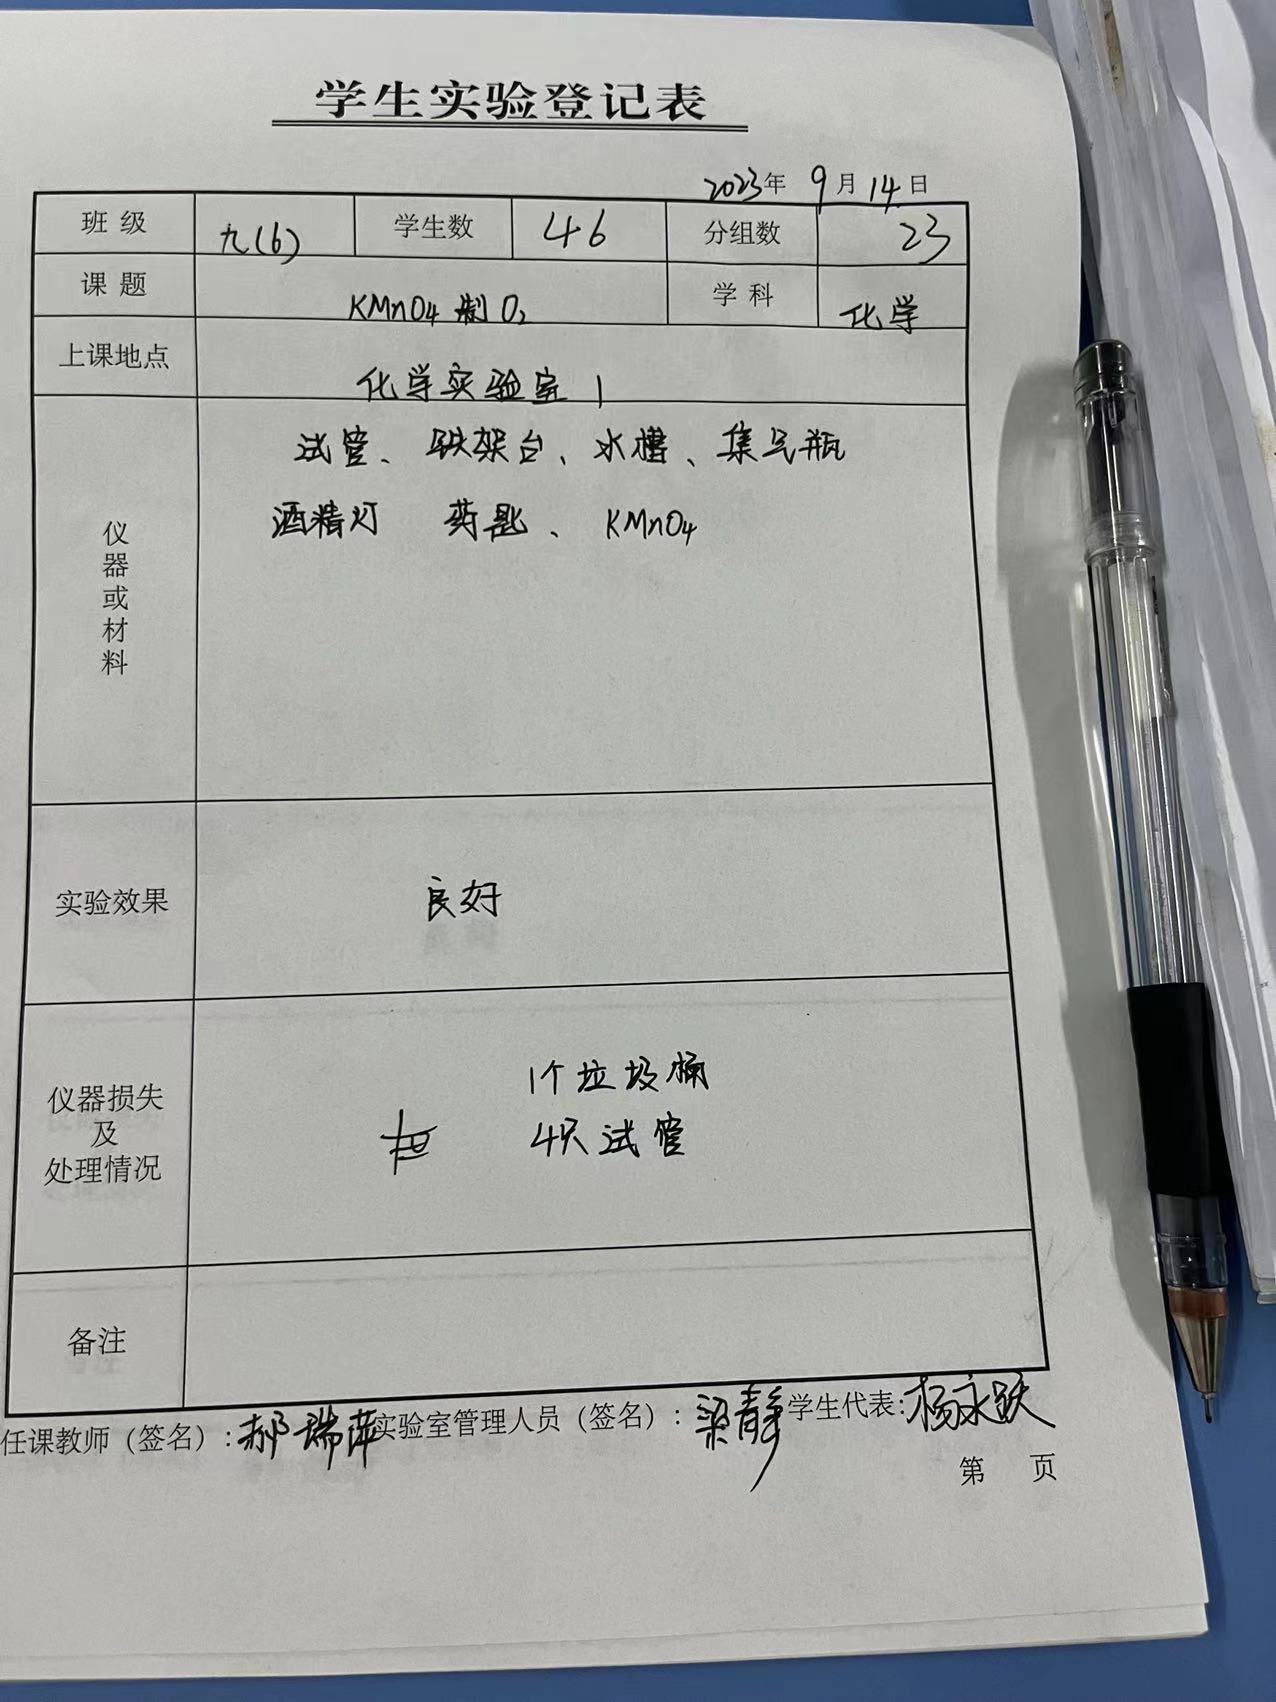 学生实验登记表
2023年 9月14日
班级 九(6) 学生数 46 分组数 23
课题 KMnO4制O2 学科 化学
上课地点 化学实验室1
仪器或材料
试管、铁架台、水槽、集气瓶
酒精灯 药匙、KMnO4
实验效果 良好
仪器损失
及
处理情况
1个垃圾桶
4只试管
备注
任课教师（签名）：郝瑞萍 实验室管理人员（签名）：梁静 学生代表：杨永跃
第 页